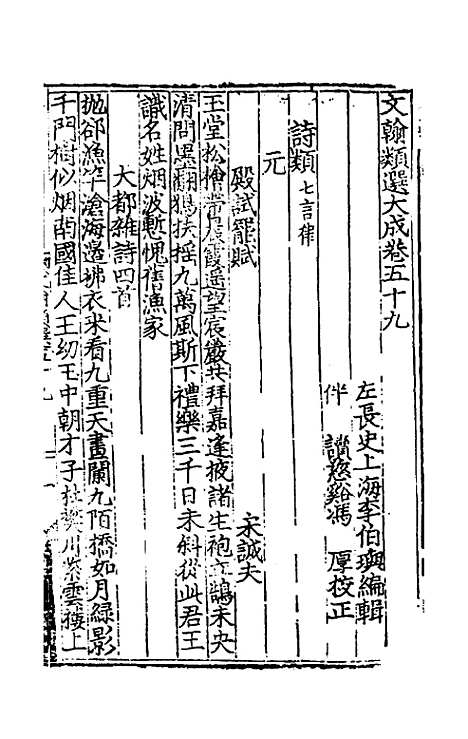 文翰類選大成卷五十九
左長史上海李伯璵編輯
伴讀慈谿馮厚校正
詩類 七言律
元
殿試罷賦 宋誠夫
玉堂松檜當層霞遥望宸嚴共拜嘉逢掖諸生袍立鵠未央
清問墨翻鴉扶摇九萬風斯下禮樂三千日未斜從此君王
識名姓烟波慙愧舊漁家
大都雜詩四首
抛郤漁竿滄海邉拂衣来看九重天畫闌九陌橋如月緑影
千門樹似烟南國佳人王幼玉中朝才子杜樊川紫雲樓上